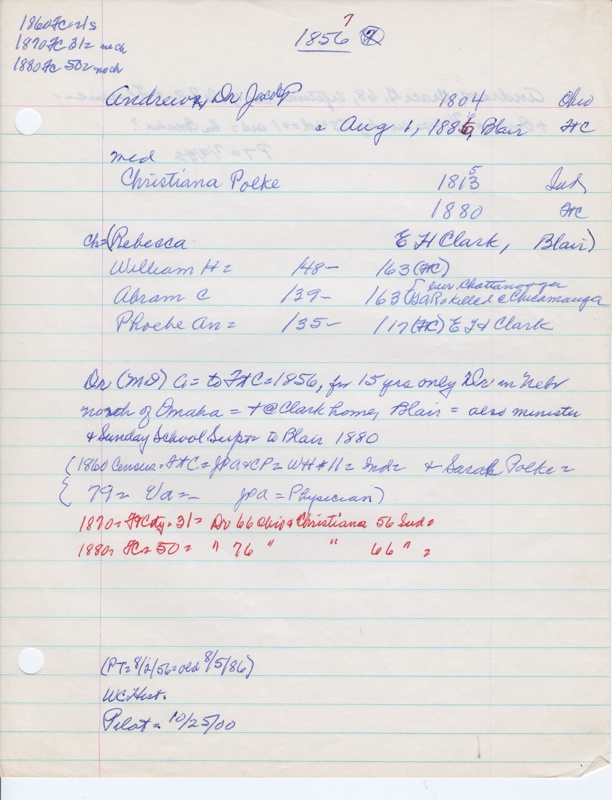 1860 FC = 1/s
1870 FC 31 = no ch
1880 FC 50 = no ch
7
1856 (7)
Andrews, Dr Jacob P 1804 Ohio
= Aug 1, 1886, Blair FC
med
Christiana Polke 1813 5 Ind
1880 FC
ch = (Rebecca E H Clark, Blair)
William H = 148 - 163 (FC)
Abram C 139 - 163 killed @ Chicamauga
Chattanooga
Phoebe An = 135 - 117 (FC) E H Clark
Dr (MD) C = to Ft C = 1856, for 15 yrs only Dr in Nebr
north of Omaha = + @ Clark home, Blair = also minister
& Sunday School Supt = to Blair 1880
(1860 Census = Ft C = JPA & CP = WH # 11 = Ind = & Sarah Polke =
79 = Va = - JPA = Physician)
1870 = Ft Cdy = 31 = Dr 66 Ohio & Christiana 56 Ind =
1880 = FC = 50 = " 76 " " 66 " =
(PT = 8/2/56 = old 8/5/86)
WC Hist.
Pilot = 10/25/00